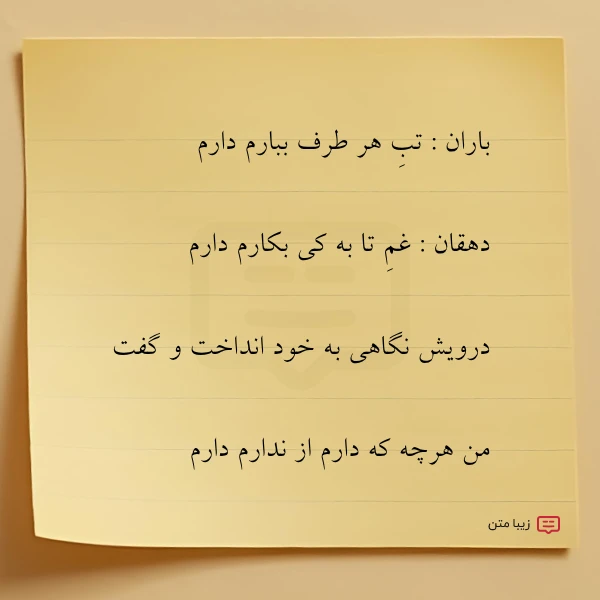 باران : تبِ هر طرف ببارم دارم
دهقان : غمِ تا به کی بکارم دارم
درویش نگاهی به خود انداخت و گفت
من هرچه که دارم از ندارم دارم
زیبا متن